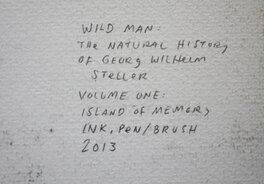 WILD MAN:
THE NATURAL HISTORY
OF GEORG WILHELM
STELLER
VOLUME ONE:
ISLAND OF MEMORY
INK, PEN/BRUSH
2013